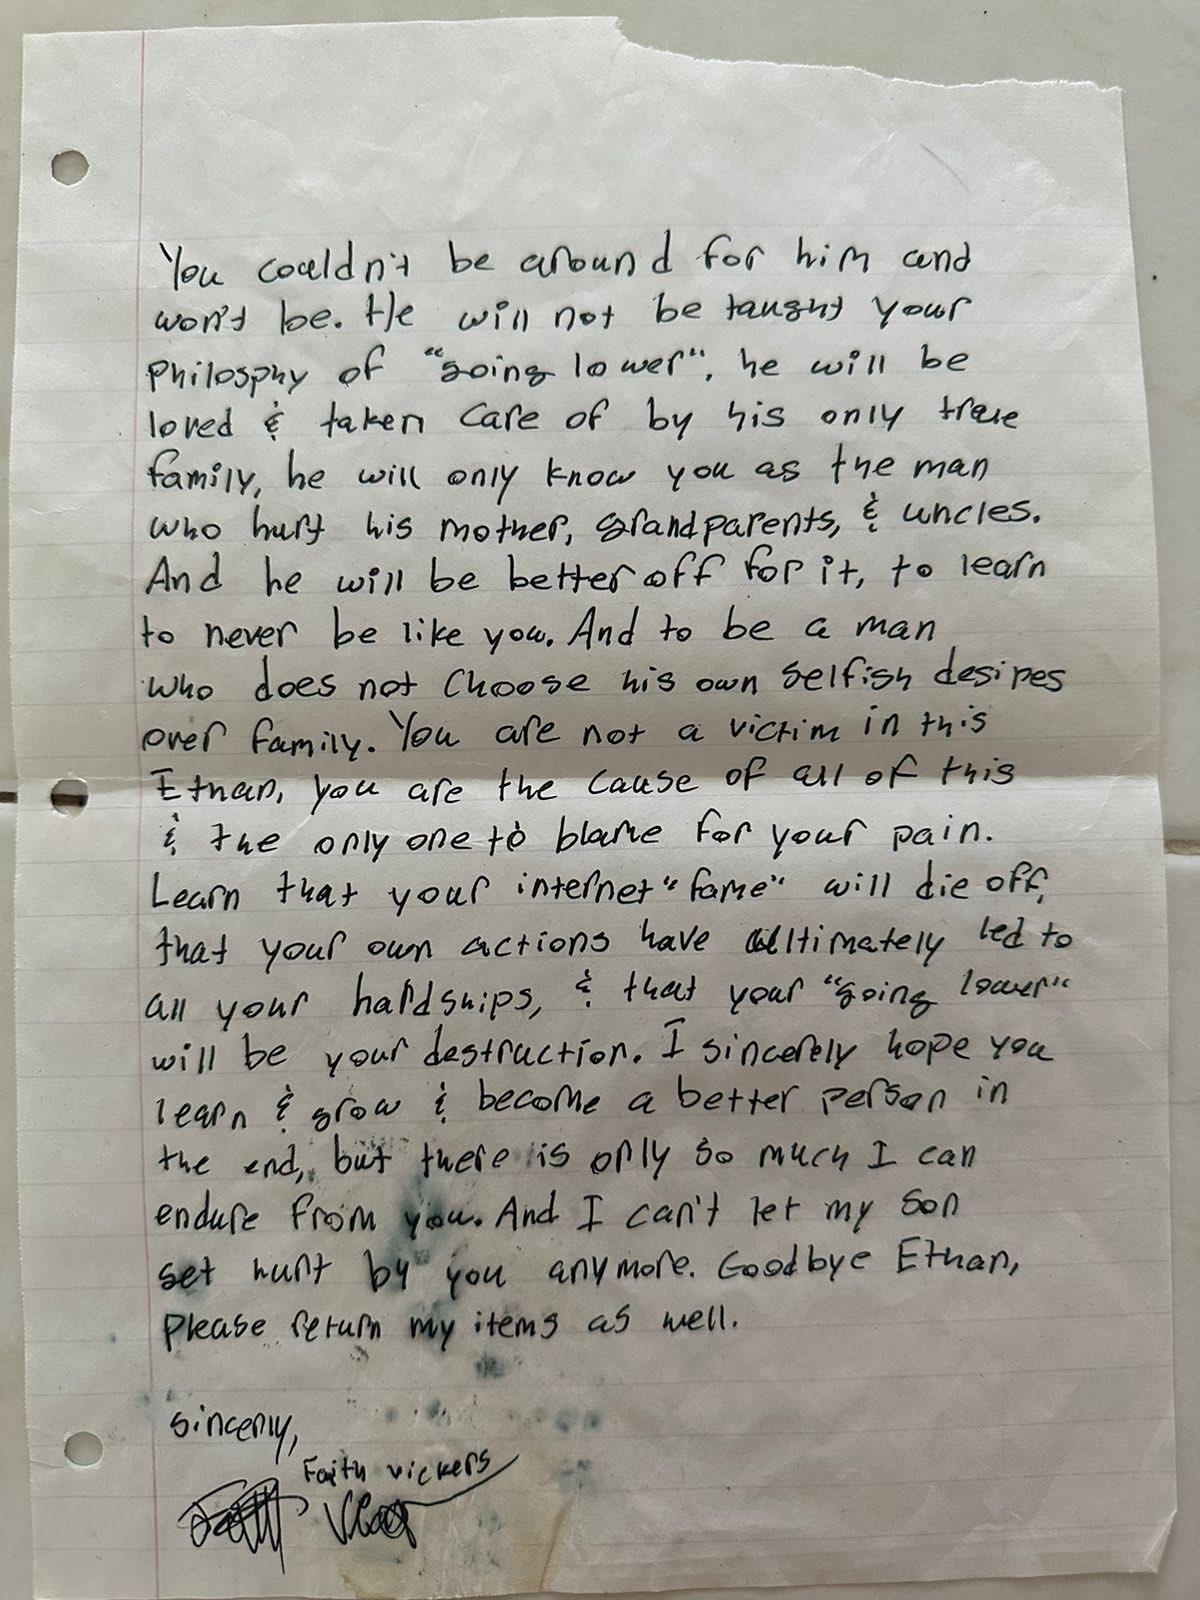 You couldn't be around for him and
won't be. He will not be taught your
Philosphy of "going lower", he will be
loved & taken care of by his only true
family, he will only know you as the man
who hurt his mother, grandparents, & uncles.
And he will be better off for it, to learn
to never be like you. And to be a man
who does not choose his own selfish desires
over family. You are not a victim in this
Ethan, you are the cause of all of this
& the only one to blame for your pain.
Learn that your internet "fame" will die off,
that your own actions have ultimately led to
all your hardships, & that your "going lower"
will be your destruction. I sincerely hope you
learn & grow & become a better person in
the end, but there is only so much I can
endure from you. And I can't let my son
get hurt by you anymore. Goodbye Ethan,
Please return my items as well.
sincerly,
Faith Vickers